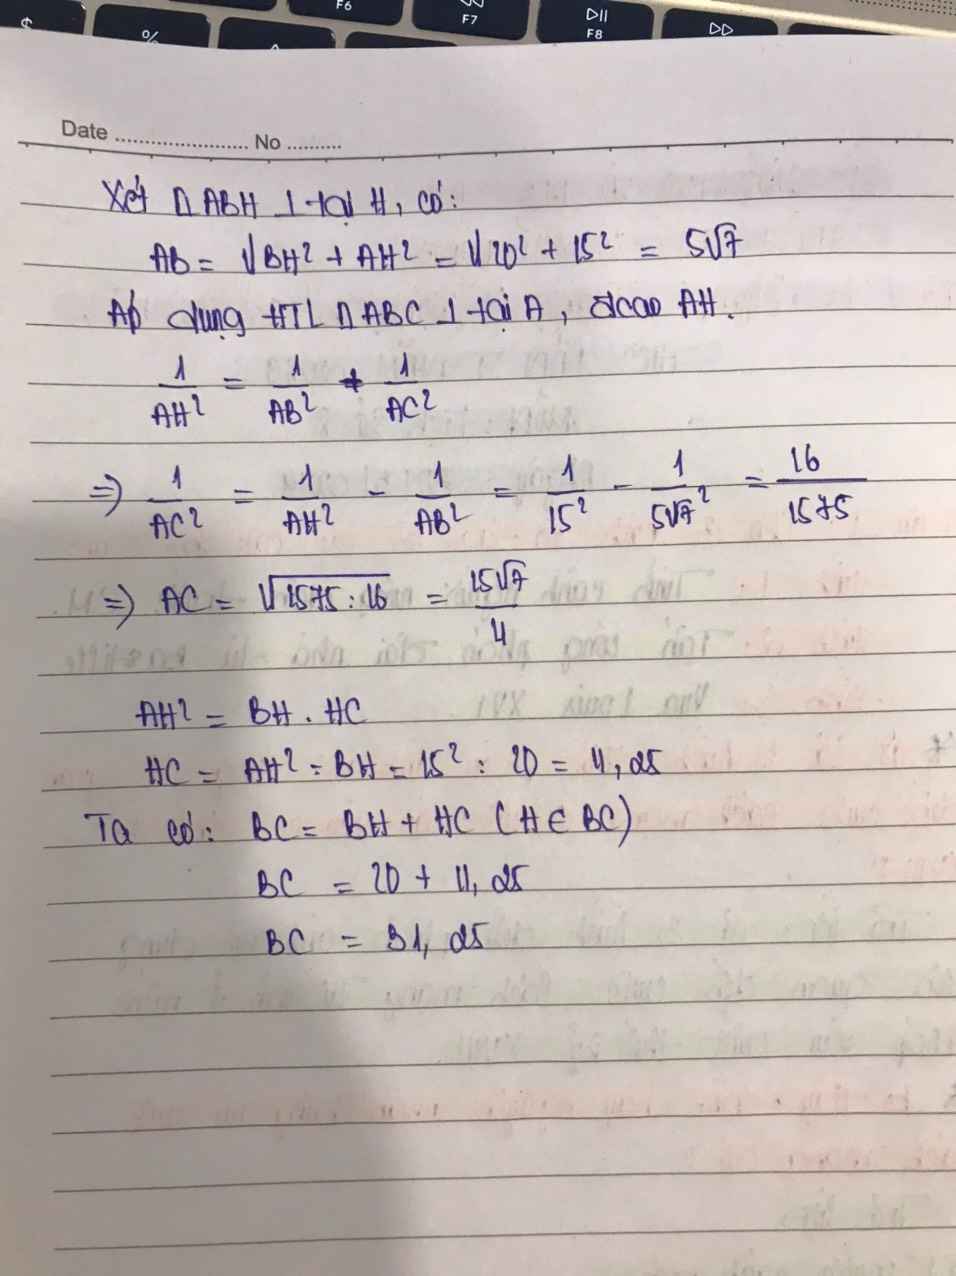 F6
F7
F8
%
Date ........................ No ..........
Xét Δ ABH ⊥ tại H, có:
AB = √BH² + AH² = √20² + 15² = 5√7
Áp dụng HTL Δ ABC ⊥ tại A, đcao AH.
1/AH² = 1/AB² + 1/AC²
=> 1/AC² = 1/AH² - 1/AB² = 1/15² - 1/5√7² = 16/1575
=> AC = √1575 : 16 = 15√7/4
AH² = BH . HC
HC = AH² : BH = 15² : 20 = 11,25
Ta có: BC = BH + HC (H ∈ BC)
BC = 20 + 11,25
BC = 31,25